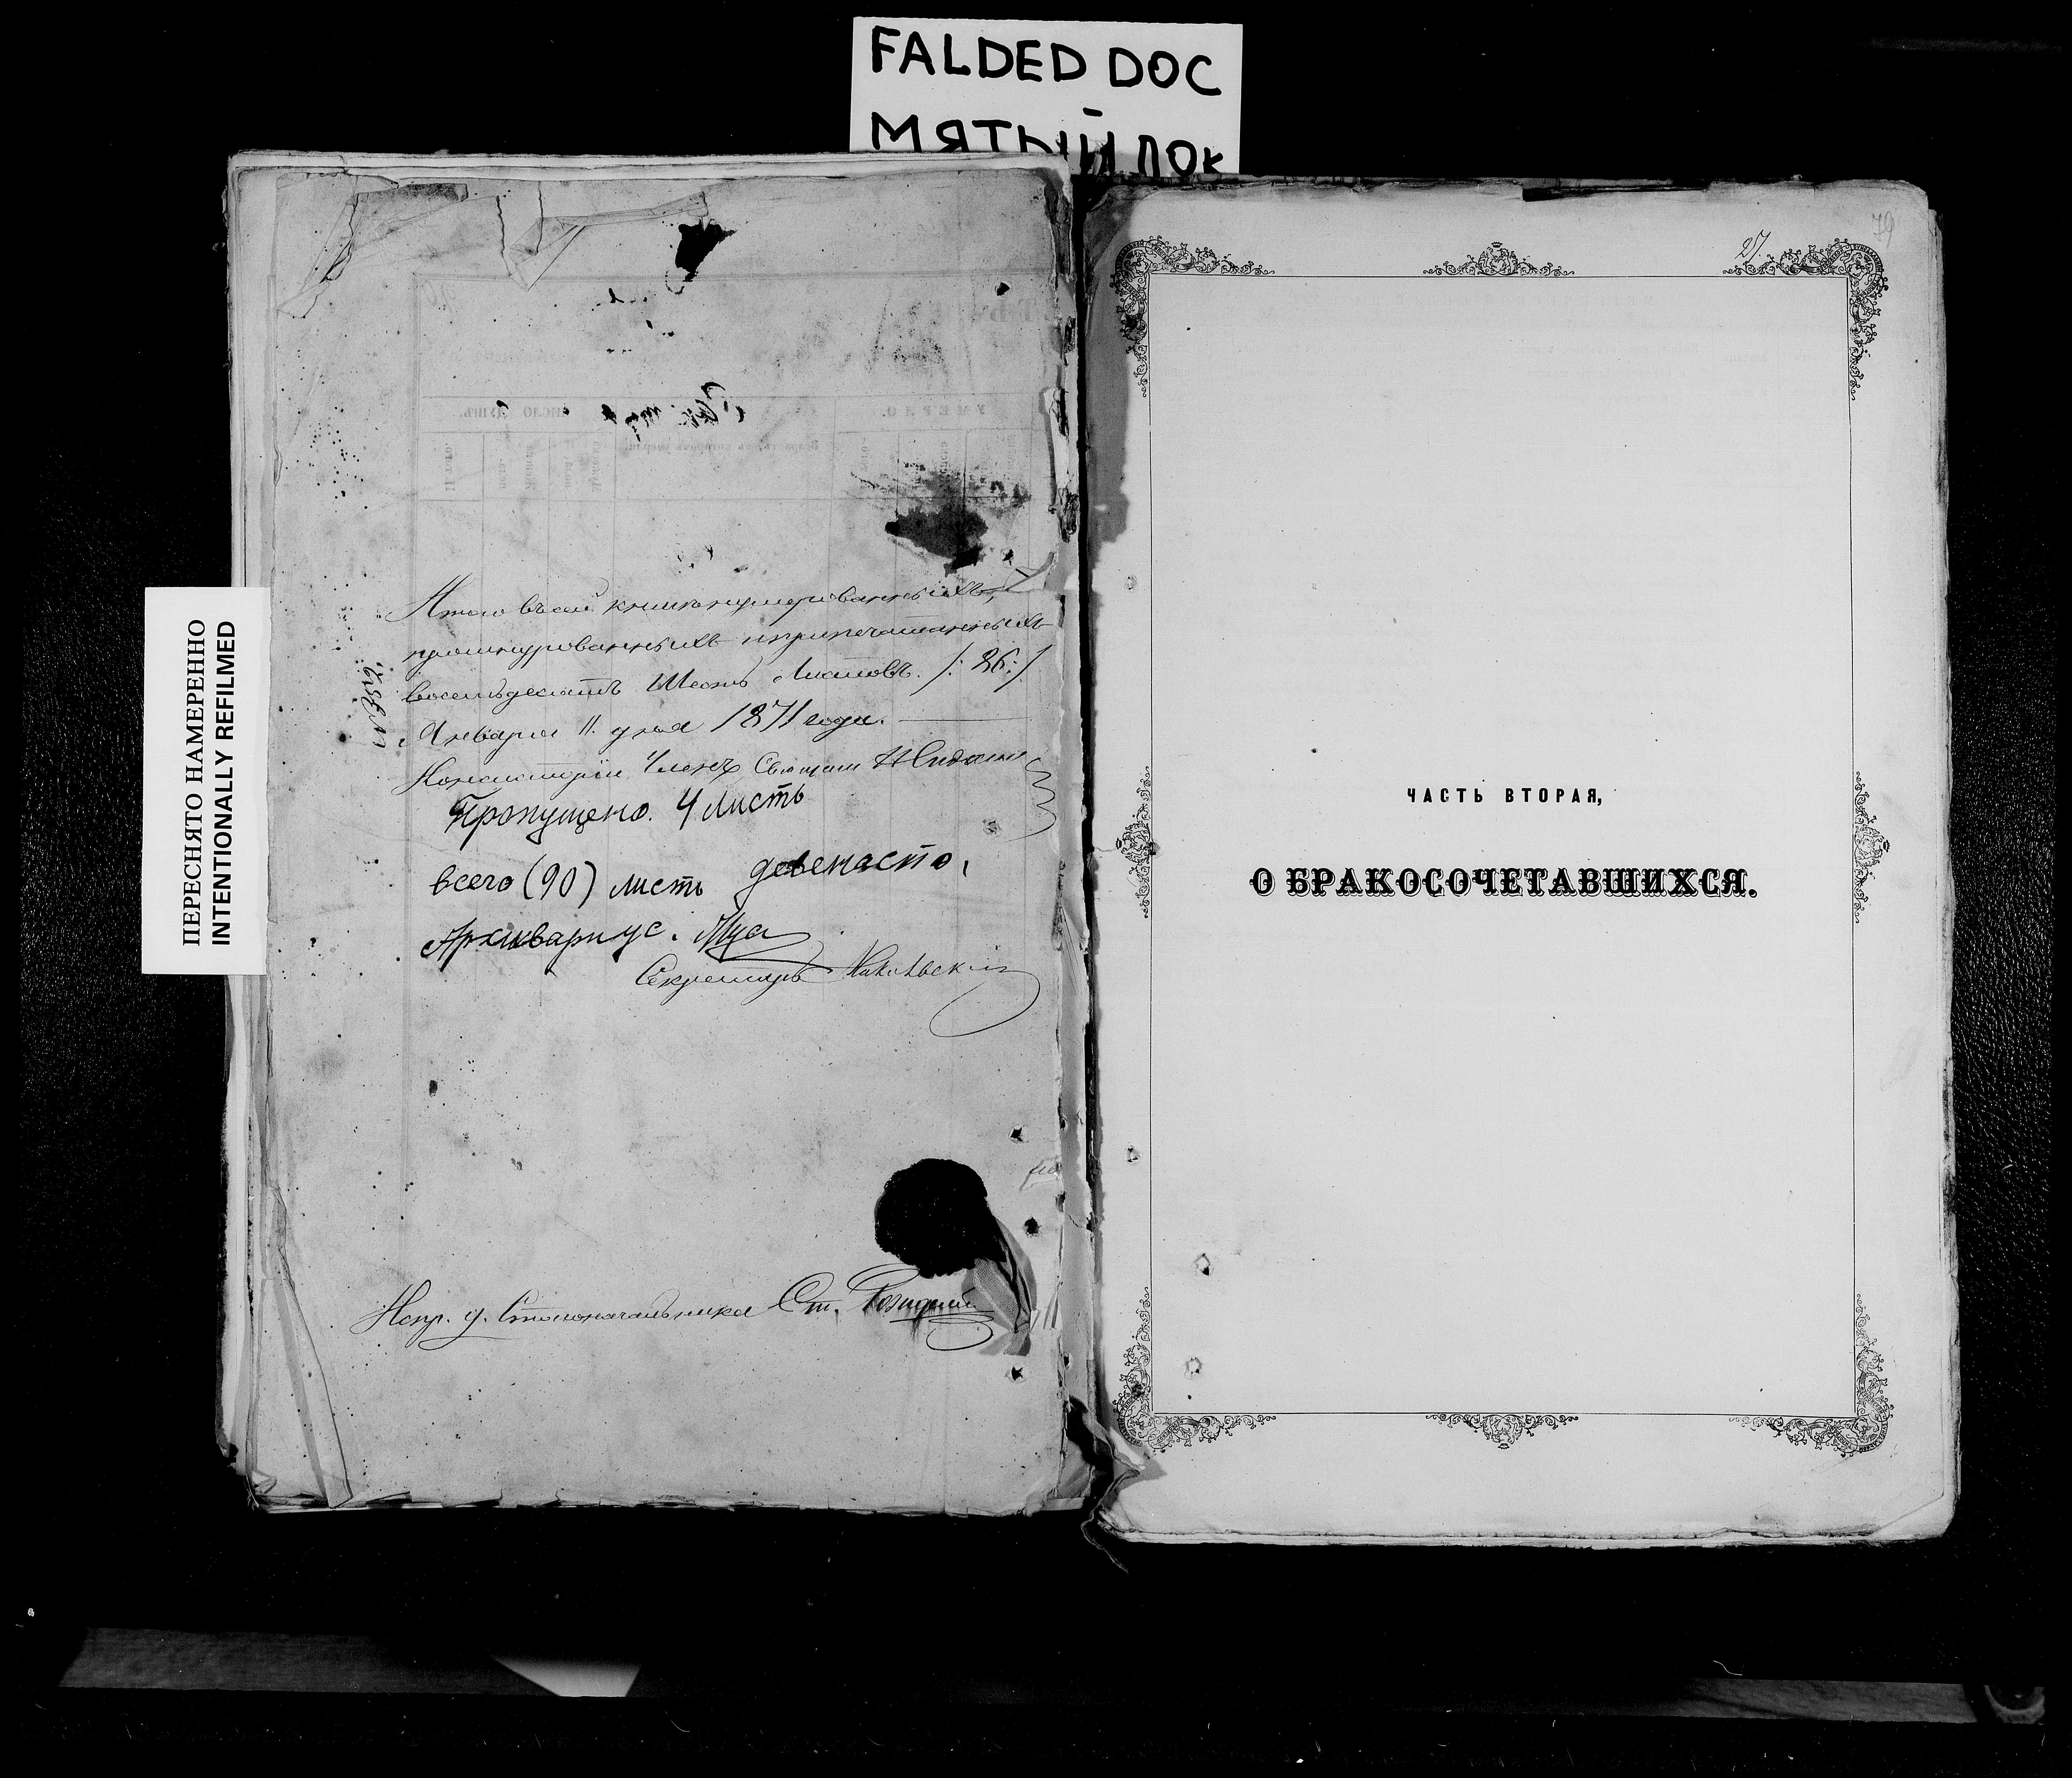 FALDED DOC
МЯТЫЙ ДОК
ПЕРЕСНЯТО НАМЕРЕННО
INTENTIONALLY REFILMED
Итого въ сей книги нумерованныхъ,
прошнурованныхъ и припечатанныхъ
восемьдесятъ шесть листовъ. /: 86:/
Января 11. дня 1871 года.
Консисторіи Членъ Священ
Пропущено. 4 листъ
всего (90) листъ девеносто,
Архивариус.
Секретарь Никольскій
Испр. д. Столоначальника Ст.
79
27.
ЧАСТЬ ВТОРАЯ,
О БРАКОСОЧЕТАВШИХСЯ.